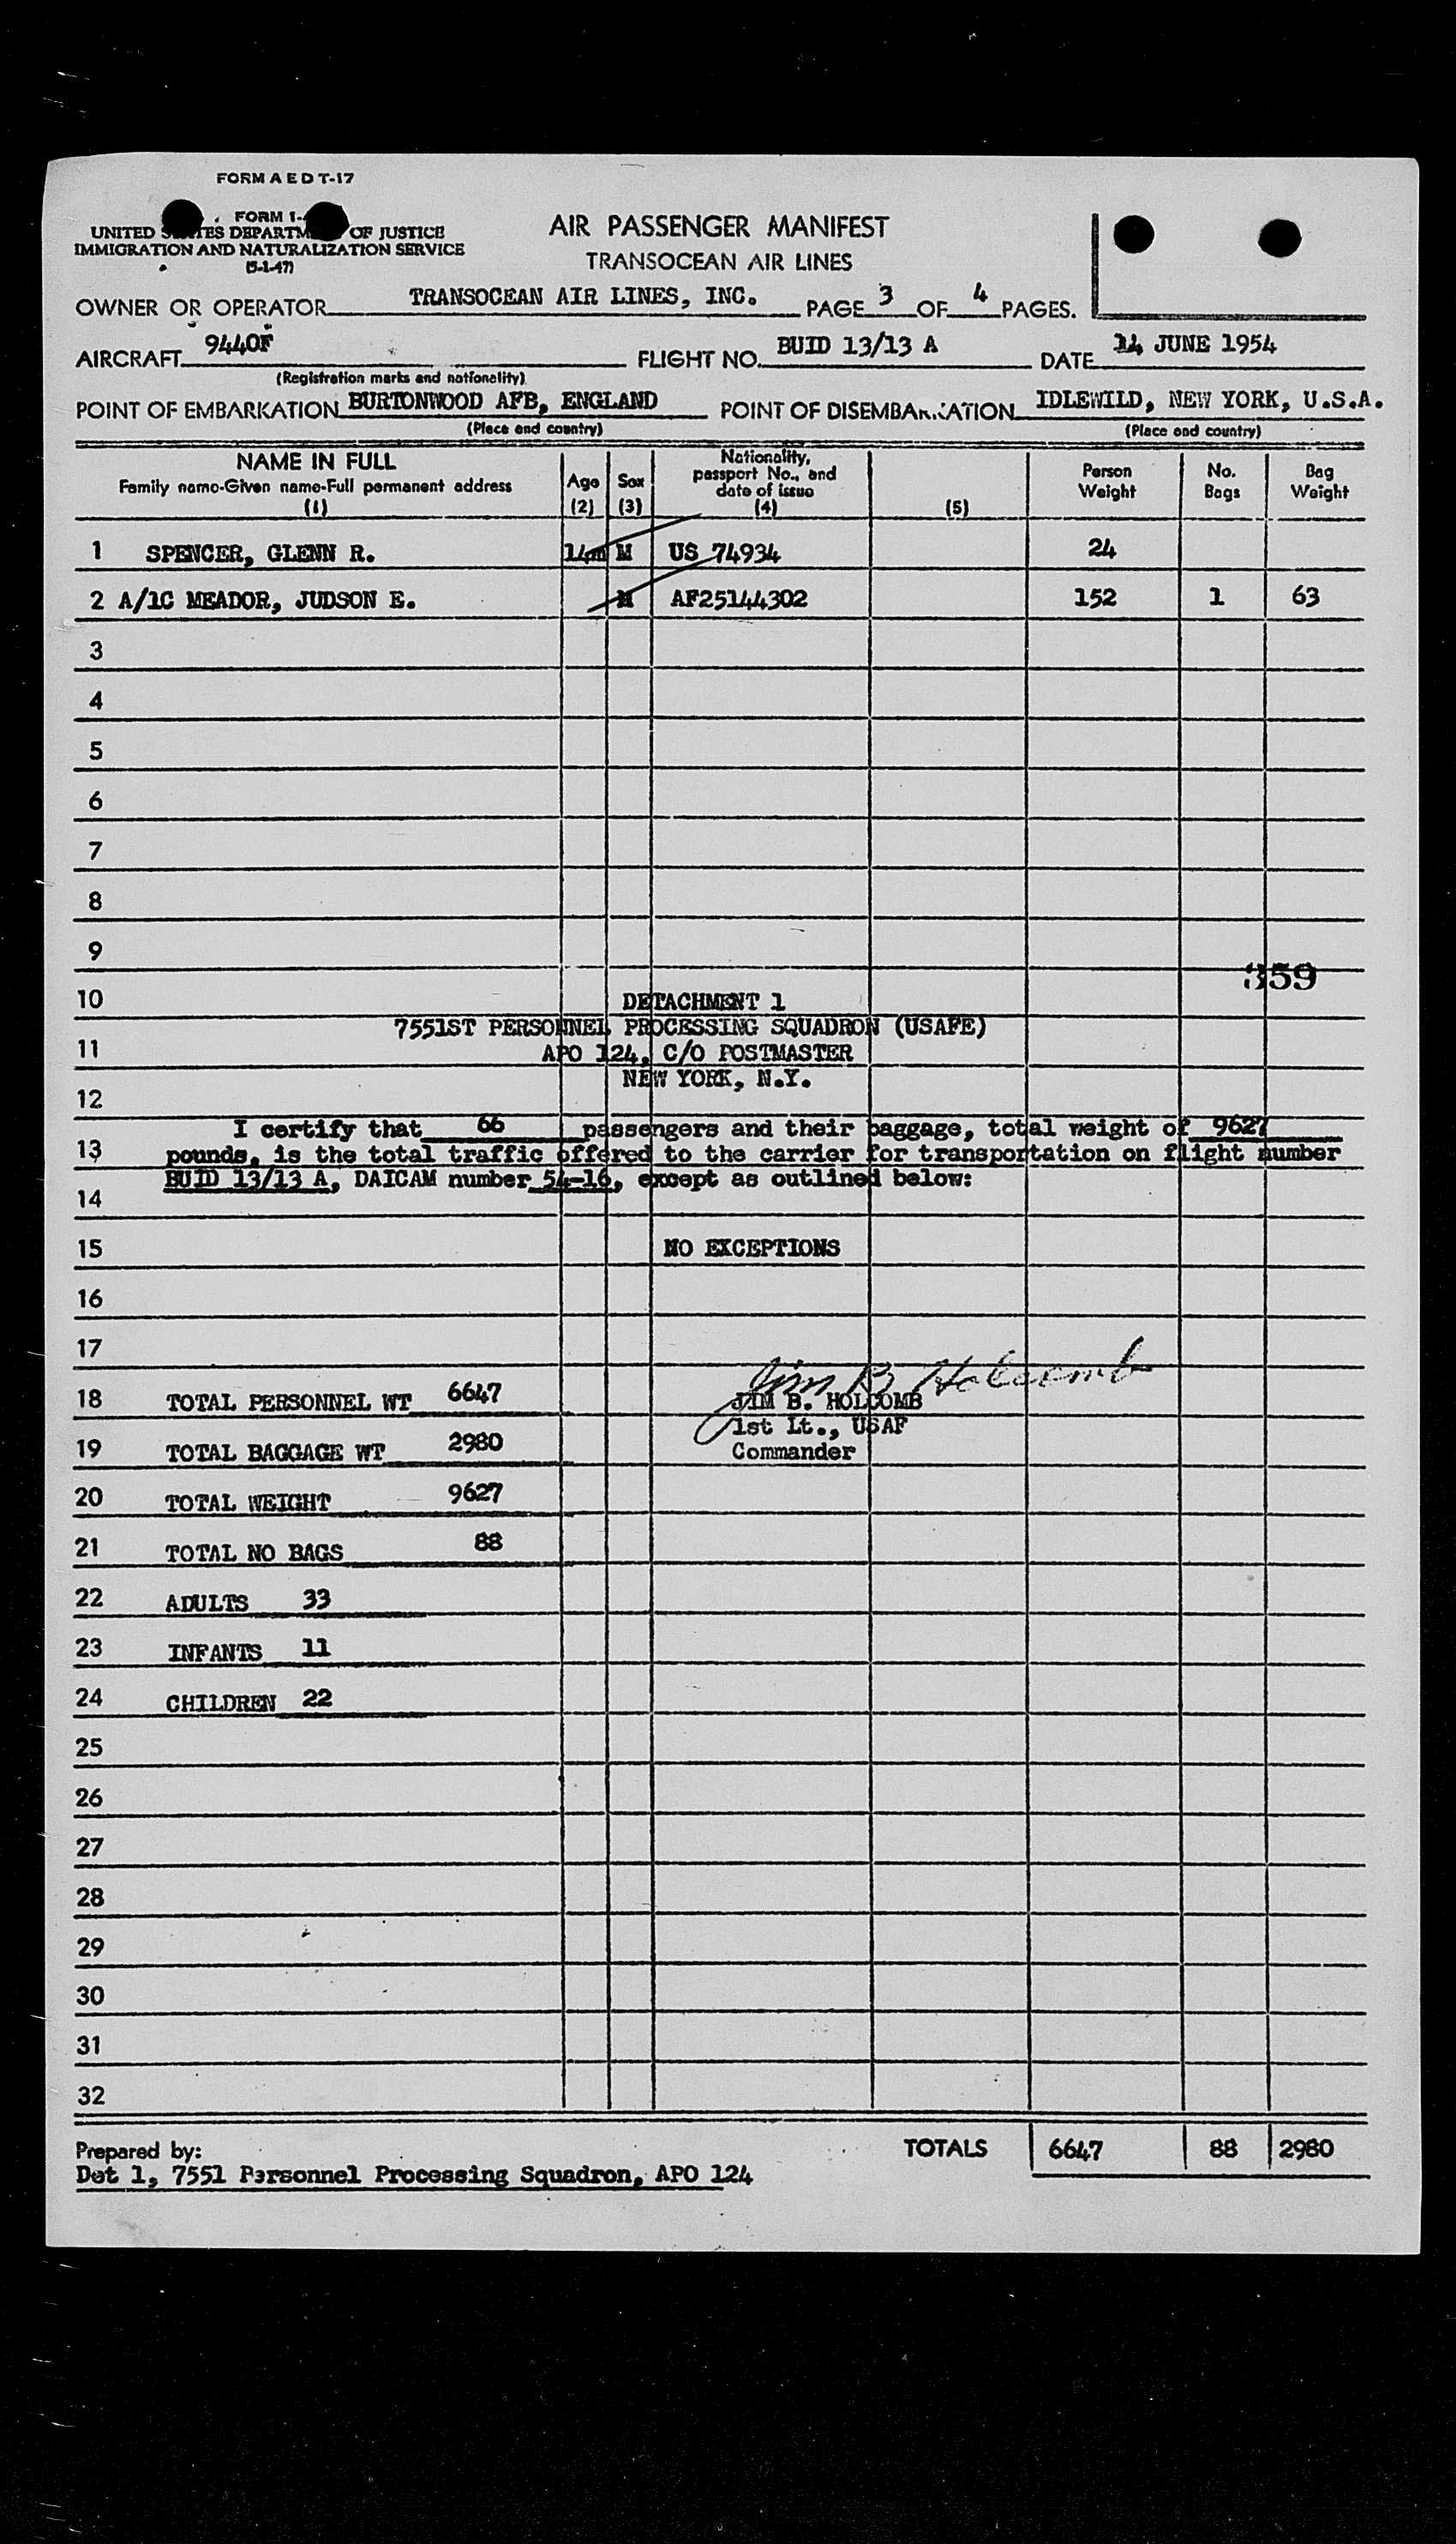 FORM A E D T-17
FORM I-
UNITED STATES DEPARTM OF JUSTICE
IMMIGRATION AND NATURALIZATION SERVICE
(5-1-47)
AIR PASSENGER MANIFEST
TRANSOCEAN AIR LINES
OWNER OR OPERATOR TRANSOCEAN AIR LINES, INC. PAGE 3 OF 4 PAGES.
AIRCRAFT 9440F FLIGHT NO. BUID 13/13 A DATE 14 JUNE 1954
(Registration marks and nationality)
POINT OF EMBARKATION BURTONWOOD AFB, ENGLAND POINT OF DISEMBARKATION IDLEWILD, NEW YORK, U.S.A.
(Place and country) (Place and country)
NAME IN FULL
Family name-Given name-Full permanent address
(1)
Age
(2)
Sex
(3)
Nationality,
passport No., and
date of issue
(4)
(5)
Person
Weight
No.
Bags
Bag
Weight
1 SPENCER, GLENN R. 14m M US 74934 24
2 A/1C MEADOR, JUDSON E. M AF25144302 152 1 63
3
4
5
6
7
8
9
359
10 DETACHMENT 1
7551ST PERSONNEL PROCESSING SQUADRON (USAFE)
11 APO 124, C/O POSTMASTER
NEW YORK, N.Y.
12
I certify that 66 passengers and their baggage, total weight of 9627
13 pounds, is the total traffic offered to the carrier for transportation on flight number
BUID 13/13 A, DAICAM number 54-16, except as outlined below:
14
15 NO EXCEPTIONS
16
17
Jim B Holcomb
18 TOTAL PERSONNEL WT 6647 JIM B. HOLCOMB
1st Lt., USAF
19 TOTAL BAGGAGE WT 2980 Commander
20 TOTAL WEIGHT 9627
21 TOTAL NO BAGS 88
22 ADULTS 33
23 INFANTS 11
24 CHILDREN 22
25
26
27
28
29
30
31
32
Prepared by: TOTALS 6647 88 2980
Det 1, 7551 Personnel Processing Squadron, APO 124